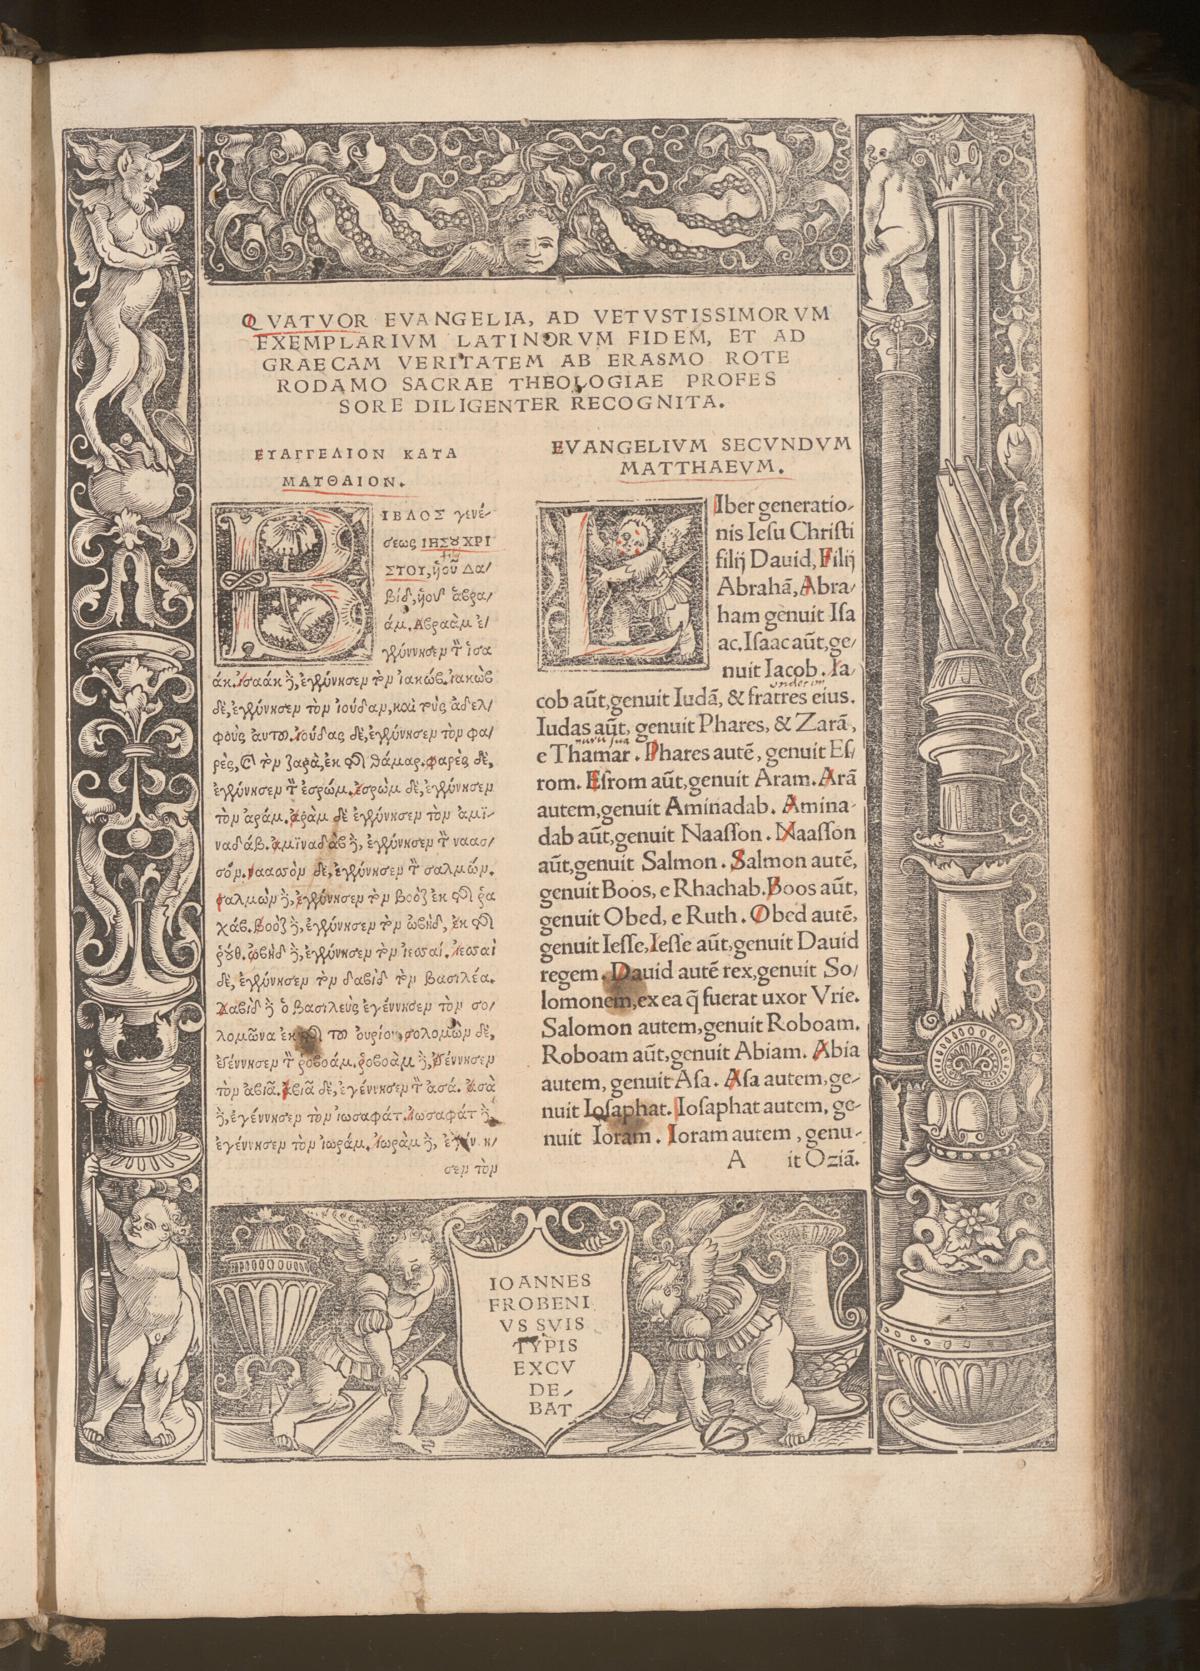 QVATVOR EVANGELIA, AD VETVSTISSIMORVM
EXEMPLARIVM LATINORVM FIDEM, ET AD
GRAECAM VERITATEM AB ERASMO ROTE
RODAMO SACRAE THEOLOGIAE PROFES
SORE DILIGENTER RECOGNITA.
ΕΥΑΓΓΕΛΙΟΝ ΚΑΤΑ
ΜΑΤΘΑΙΟΝ.
ΒΙΒΛΟΣ γενέ-
σεως ΙΗΣΟΥ ΧΡΙ
ΣΤΟΥ, ὑοῦ Δα/
βίδ, ὑοῦ ἀβρα/
άμ. Αβραὰμ ἐ/
γέννησεμ τὸν ἰσα
άκ. ἰσαάκ δὲ, ἐγέννησεμ τὸμ ἰακώβ. ἰακὼβ
δὲ, ἐγέννησεμ τὸμ ἰούδαμ, καὶ τοὺς ἀδελ/
φοὺς αυτου. ἰούδας δὲ, ἐγέννησεμ τὸμ φα/
ρὲς, καὶ τὸμ ζαρὰ, ἐκ τῆς θάμαρ. φαρὲς δὲ,
ἐγέννησεμ τὸν ἐσρώμ. ἐσρὼμ δὲ, ἐγέννησεμ
τὸμ ἀράμ. ἀρὰμ δὲ ἐγέννησεμ τὸμ ἀμϊ-
ναδάβ. ἀμϊναδὰβ δὲ, ἐγέννησεμ τὸν ναασ/
σόμ. ναασσὸμ δὲ, ἐγέννησεμ τὸν σαλμώμ.
σαλμὼμ δὲ, ἐγέννησεμ τὸμ βοὸζ ἐκ τῆς ῥα
χάβ. βοὸζ δὲ, ἐγέννησεμ τὸμ ὠβὴδ, ἐκ τῆς
ῥούθ. ὠβὴδ δὲ, ἐγέννησεμ τὸμ ἰεσσαί. ἰεσσαὶ
δὲ, ἐγέννησεμ τὸμ δαβὶδ τὸμ βασιλέα.
Δαβὶδ δὲ ὁ βασιλεὺς ἐγέννησεμ τὸμ σο/
λομῶνα ἐκ τῆς του ὀυρίου. σολομὼμ δὲ,
ἐγέννησεμ τὸν ῥοβοάμ. ῥοβοὰμ δὲ, ἐγέννησεμ
τὸμ ἀβιᾶ. ἀβιᾶ δὲ, ἐγέννησεμ τὸν ἀσά. ἀσὰ
δὲ, ἐγέννησεμ τὸμ ἰωσαφάτ. ἰωσαφάτ δὲ,
ἐγέννησεμ τὸμ ἰωράμ. ἰωρὰμ δὲ, ἐγέννη/
σεμ τὸμ
EVANGELIVM SECVNDVM
MATTHAEVM.
LIber generatio-
nis Iesu Christi
filij Dauid, Filij
Abrahã, Abra/
ham genuit Isa
ac. Isaac aũt, ge/
nuit Iacob. Ia/
cob aũt, genuit Iudã, & fratres eius.
Iudas aũt, genuit Phares, & Zarã,
e Thamar. Phares autẽ, genuit Es/
rom. Esrom aũt, genuit Aram. Arã
autem, genuit Aminadab. Amina-
dab aũt, genuit Naasson. Naasson
aũt, genuit Salmon. Salmon autẽ,
genuit Boos, e Rhachab. Boos aũt,
genuit Obed, e Ruth. Obed autẽ,
genuit Iesse, Iesse aũt, genuit Dauid
regem. Dauid autẽ rex, genuit So/
lomonem, ex ea q̃ fuerat uxor Vrie.
Salomon autem, genuit Roboam.
Roboam aũt, genuit Abiam. Abia
autem, genuit Asa. Asa autem, ge-
nuit Iosaphat. Iosaphat autem, ge-
nuit Ioram. Ioram autem, genu-
A it Oziã.
IOANNES
FROBENI
VS SVIS
TYPIS
EXCV
DE-
BAT